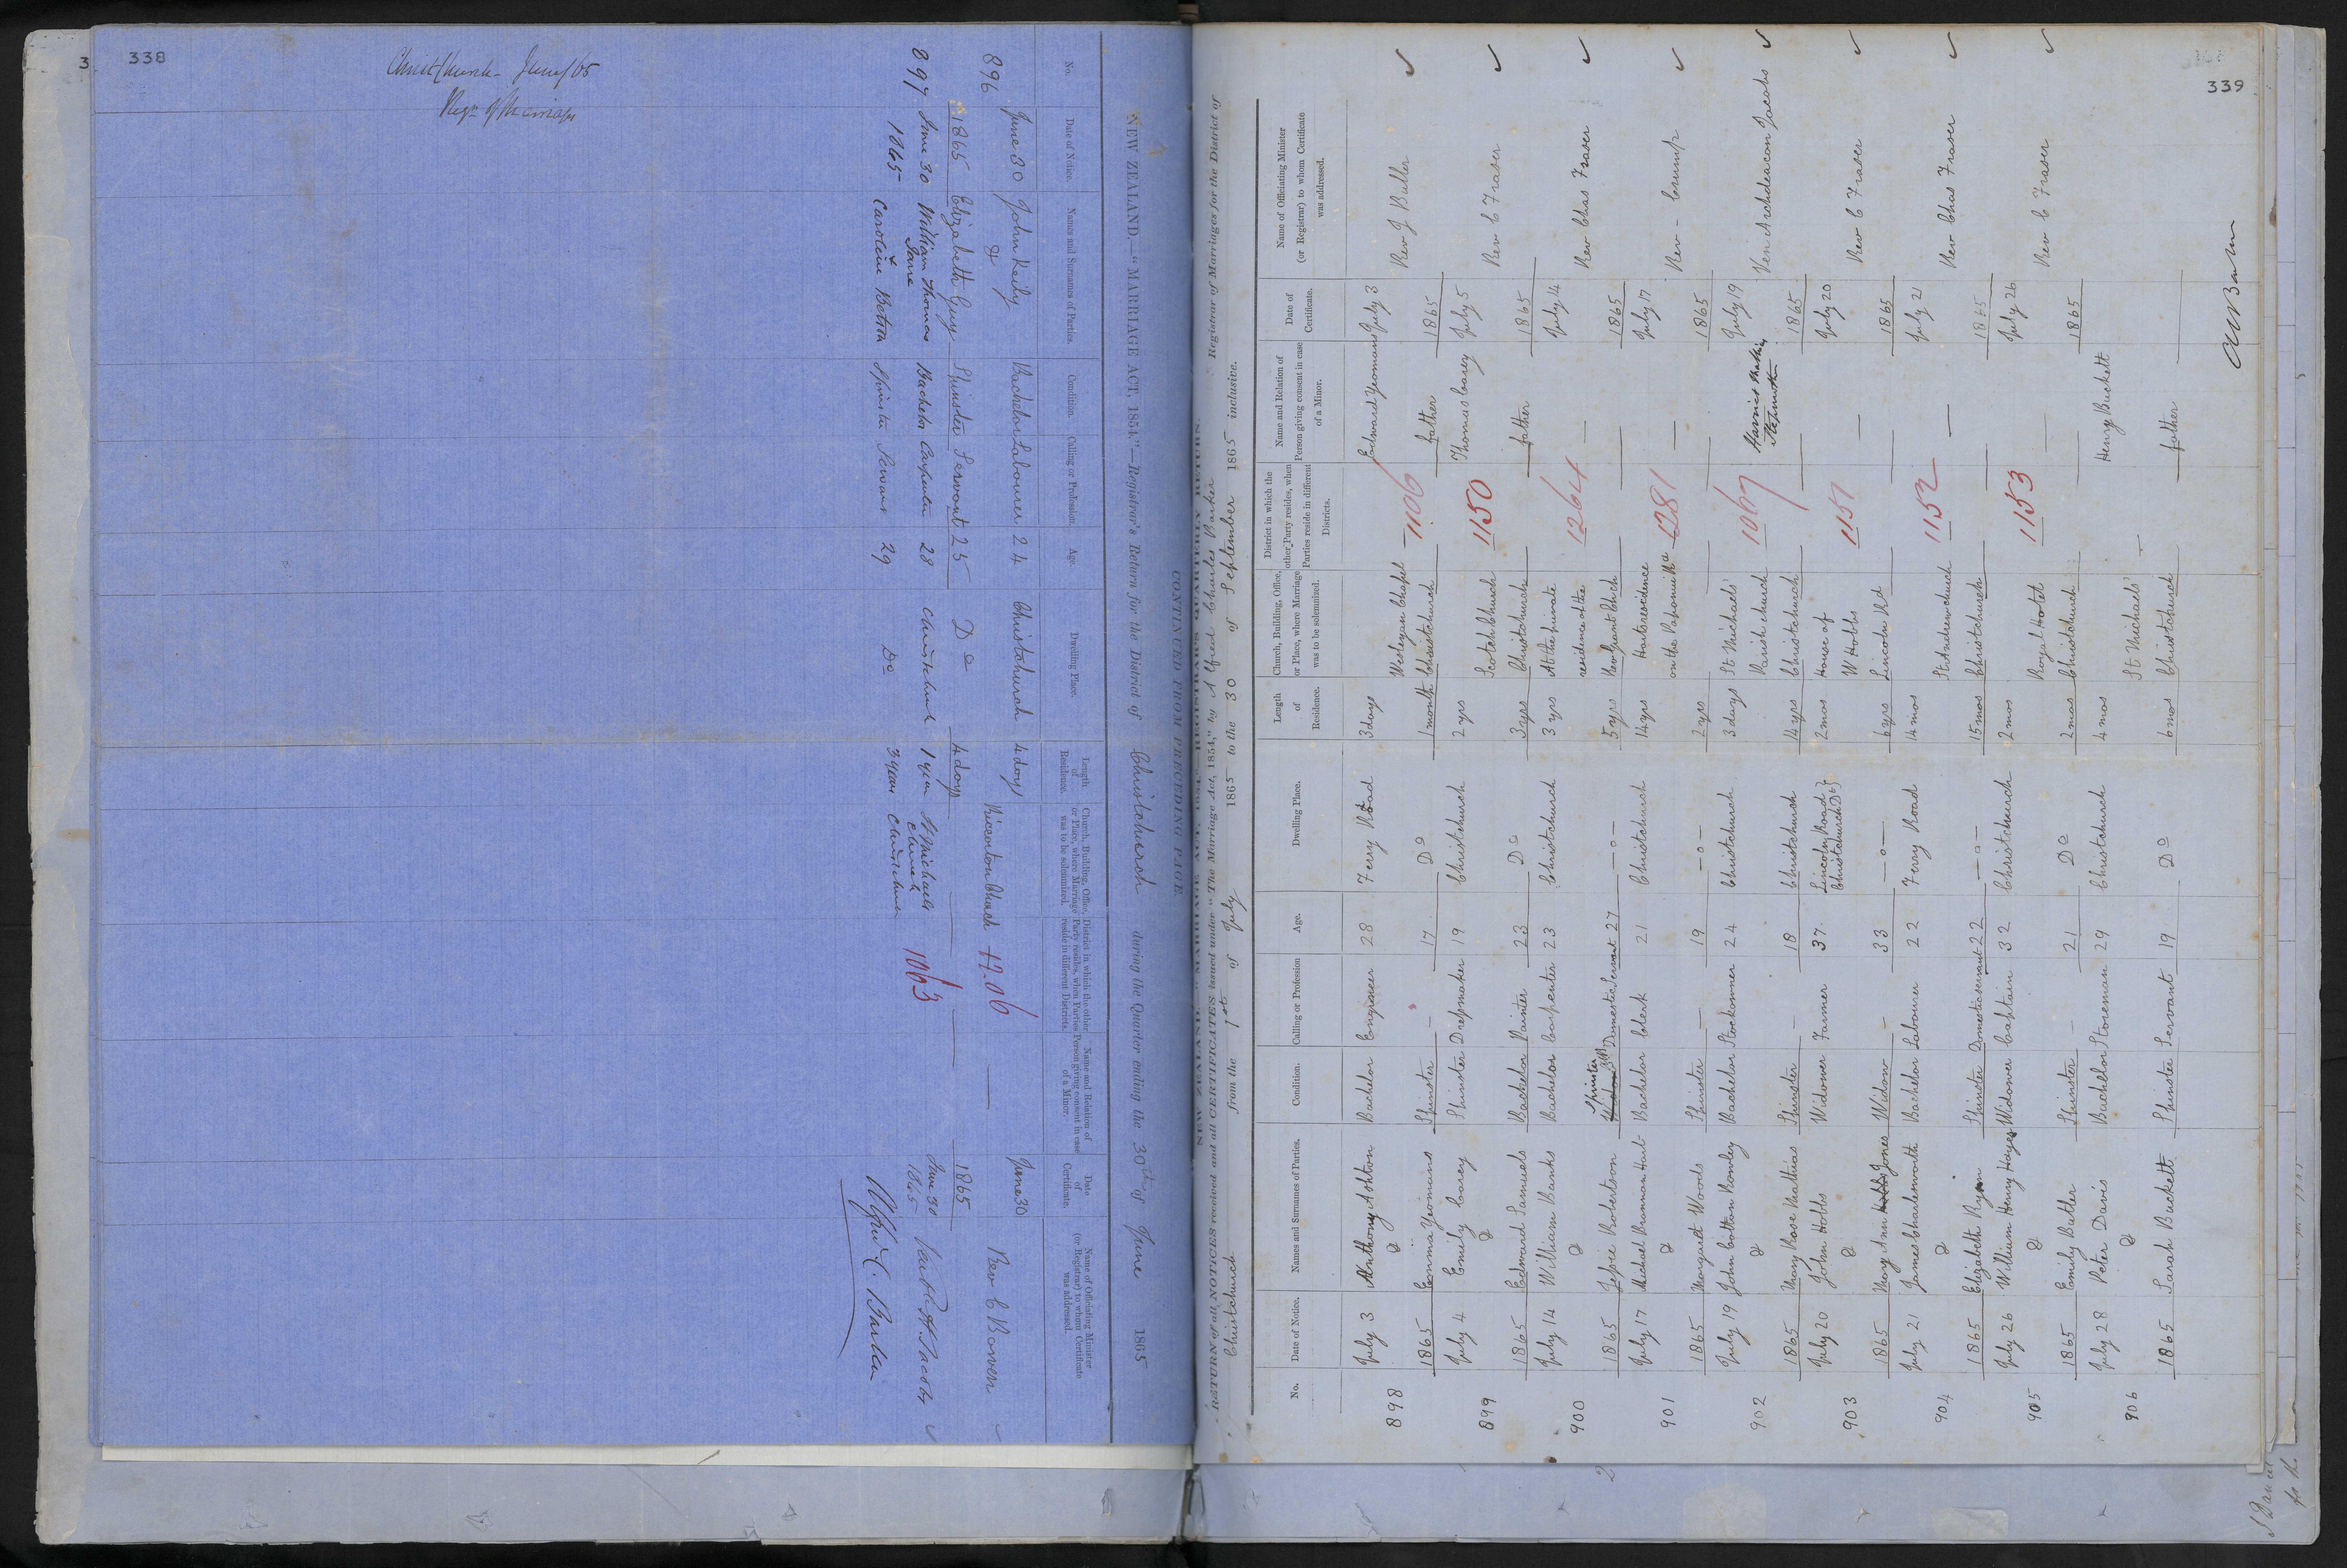 338
Christchurch - June/65
Regr of Marriages
NEW ZEALAND.—"MARRIAGE ACT, 1854."—Registrar's Return for the District of Christchurch during the Quarter ending the 30th of June 1865
No. Date of Notice. Names and Surnames of Parties. Condition. Calling or Profession. Age. Dwelling Place. Length of Residence. Church, Building, Office, or Place, where Marriage was to be solemnized. District in which the other Party resides, when Parties reside in different Districts. Name and Relation of Person giving consent in case of a Minor. Date of Certificate. Name of Officiating Minister (or Registrar) to whom Certificate was addressed.
896 June 30 John Keily Bachelor Labourer 24 Christchurch 4 days Riccarton Church — June 30 Rev C Bowen
&
1865 Elizabeth Guy Spinster Servant 25 Do 4 days — — 1865
897 June 30 William Thomas Bachelor Carpenter 28 Christchurch 1 year St Michaels 1063 June 30
Jane church 1865
&
1865 Caroline Spinster Servant 29 Do 3 years Christchurch
Alfred C. Barker
339
CONTINUED FROM PRECEDING PAGE.
NEW ZEALAND.—"MARRIAGE ACT, 1854."—REGISTRAR'S QUARTERLY RETURN.
RETURN of all NOTICES received and all CERTIFICATES issued under "The Marriage Act, 1854," by Alfred Charles Barker Registrar of Marriages for the District of
Christchurch from the 1st of July 1865 to the 30 of September 1865 inclusive.
No. Date of Notice. Names and Surnames of Parties. Condition. Calling or Profession Age. Dwelling Place. Length of Residence. Church, Building, Office, or Place, where Marriage was to be solemnized. District in which the other Party resides, when Parties reside in different Districts. Name and Relation of Person giving consent in case of a Minor. Date of Certificate. Name of Officiating Minister (or Registrar) to whom Certificate was addressed.
898 July 3 Anthony Ashton Bachelor Engineer 28 Ferry Road 3 days Wesleyan Chapel 1106 Edward Yeomans July 3 Rev J Buller
&
1865 Emma Yeomans Spinster — 17 Do 1 month Christchurch father 1865
899 July 4 Emily Carey Spinster Dressmaker 19 Christchurch 2 yrs Scotch Church 1150 Thomas Carey July 5 Rev C Fraser
&
1865 Edward Samuels Bachelor Painter 23 Do 3 yrs Christchurch father 1865
900 July 14 William Banks Bachelor Carpenter 23 Christchurch 3 yrs At the private 1264 — July 14 Rev Chas Fraser
& residence of the
Spinster
1865 Jessie Robertson Domestic Servant 27 —o— 5 yrs 1865
901 July 17 Michael Brannan Hart Bachelor Clerk 21 Christchurch 14 yrs Harts residence 1281 — July 17 Rev - Crump
&
1865 Margaret Woods Spinster — 19 —o— 2 yrs on the Papanui Rd 1865
902 July 19 John Cotton Rowley Bachelor Stockowner 24 Christchurch 3 days St Michaels' 1067 Harriet Mathias July 19 Ven Archdeacon Jacobs
& Parish church Stepmother
1865 Mary Rose Mathias Spinster — 18 Christchurch 14 yrs Christchurch 1865
903 July 20 John Hobbs Widower Farmer 37. Lincoln Road 2 mos House of 1151 — July 20 Rev C Fraser
& Christchurch Dt W Hobbs
1865 Mary Ann Jones Widow — 33 —o— 6 yrs Lincoln Rd 1865
904 July 21 James Charlesworth Bachelor Labourer 22 Ferry Road 14 mos St Andrew church 1152 — July 21 Rev Chas Fraser
&
1865 Elizabeth Ryan Spinster Domestic servant 22 —o— 15 mos Christchurch 1865
905 July 26 William Henry Hayes Widower Captain 32 Christchurch 2 mos Royal Hotel 1153 — July 26 Rev C Fraser
&
1865 Emily Butler Spinster — 21 Do 2 mos Christchurch 1865
906 July 28 Peter Davis Bachelor Storeman 29 Christchurch 4 mos St Michaels' — Henry Buckett
&
1865 Sarah Buckett Spinster Servant 19 Do 6 mos Christchurch father